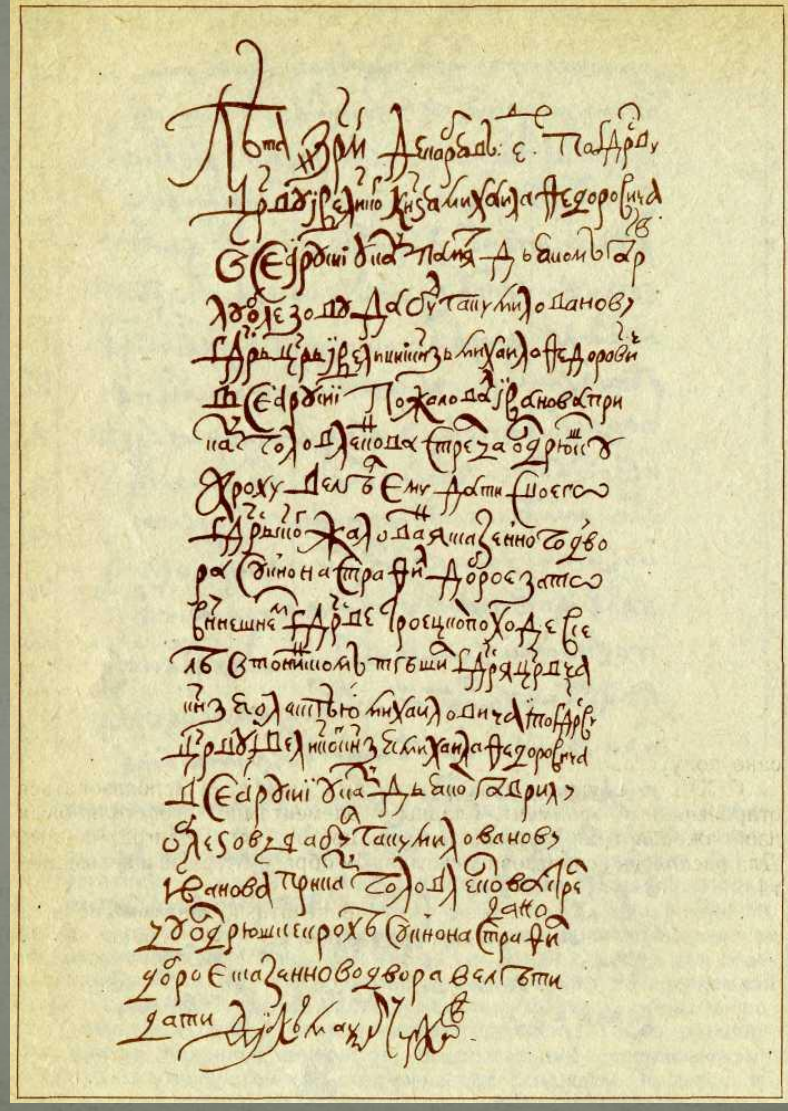 Лѣта ҂зрм декабря въ е де по гсдрву
црву и великого кнзя михаила федоровича
всеа русиі указу память дьякомъ гаври
лу облезову да булгаку миловановУ
гсдрь црь и великиі кнзь михаило федорович
всеа русиі пожаловал іванова при
казу стрелца ондрюшку
яроху велѣлъ ему дати своего
гсдрьского жалованя казенного дво
ра сукно настрафил доброе за то
в нынешнем гсдрве троецком походе в се
лѣ в тонинскомъ тѣшил гсдря црвча
кнзя алексѣя михаиловича и по гсдрву
црву и великого кнзя михаила федоровича
всеа русиі указу дьяком гаврилу
облезову да булгаку миловановУ
иванова приказу стре
дано
лцу ондрюшке ярохѣ сукно настрафил
доброе казенново двора велѣти
дати